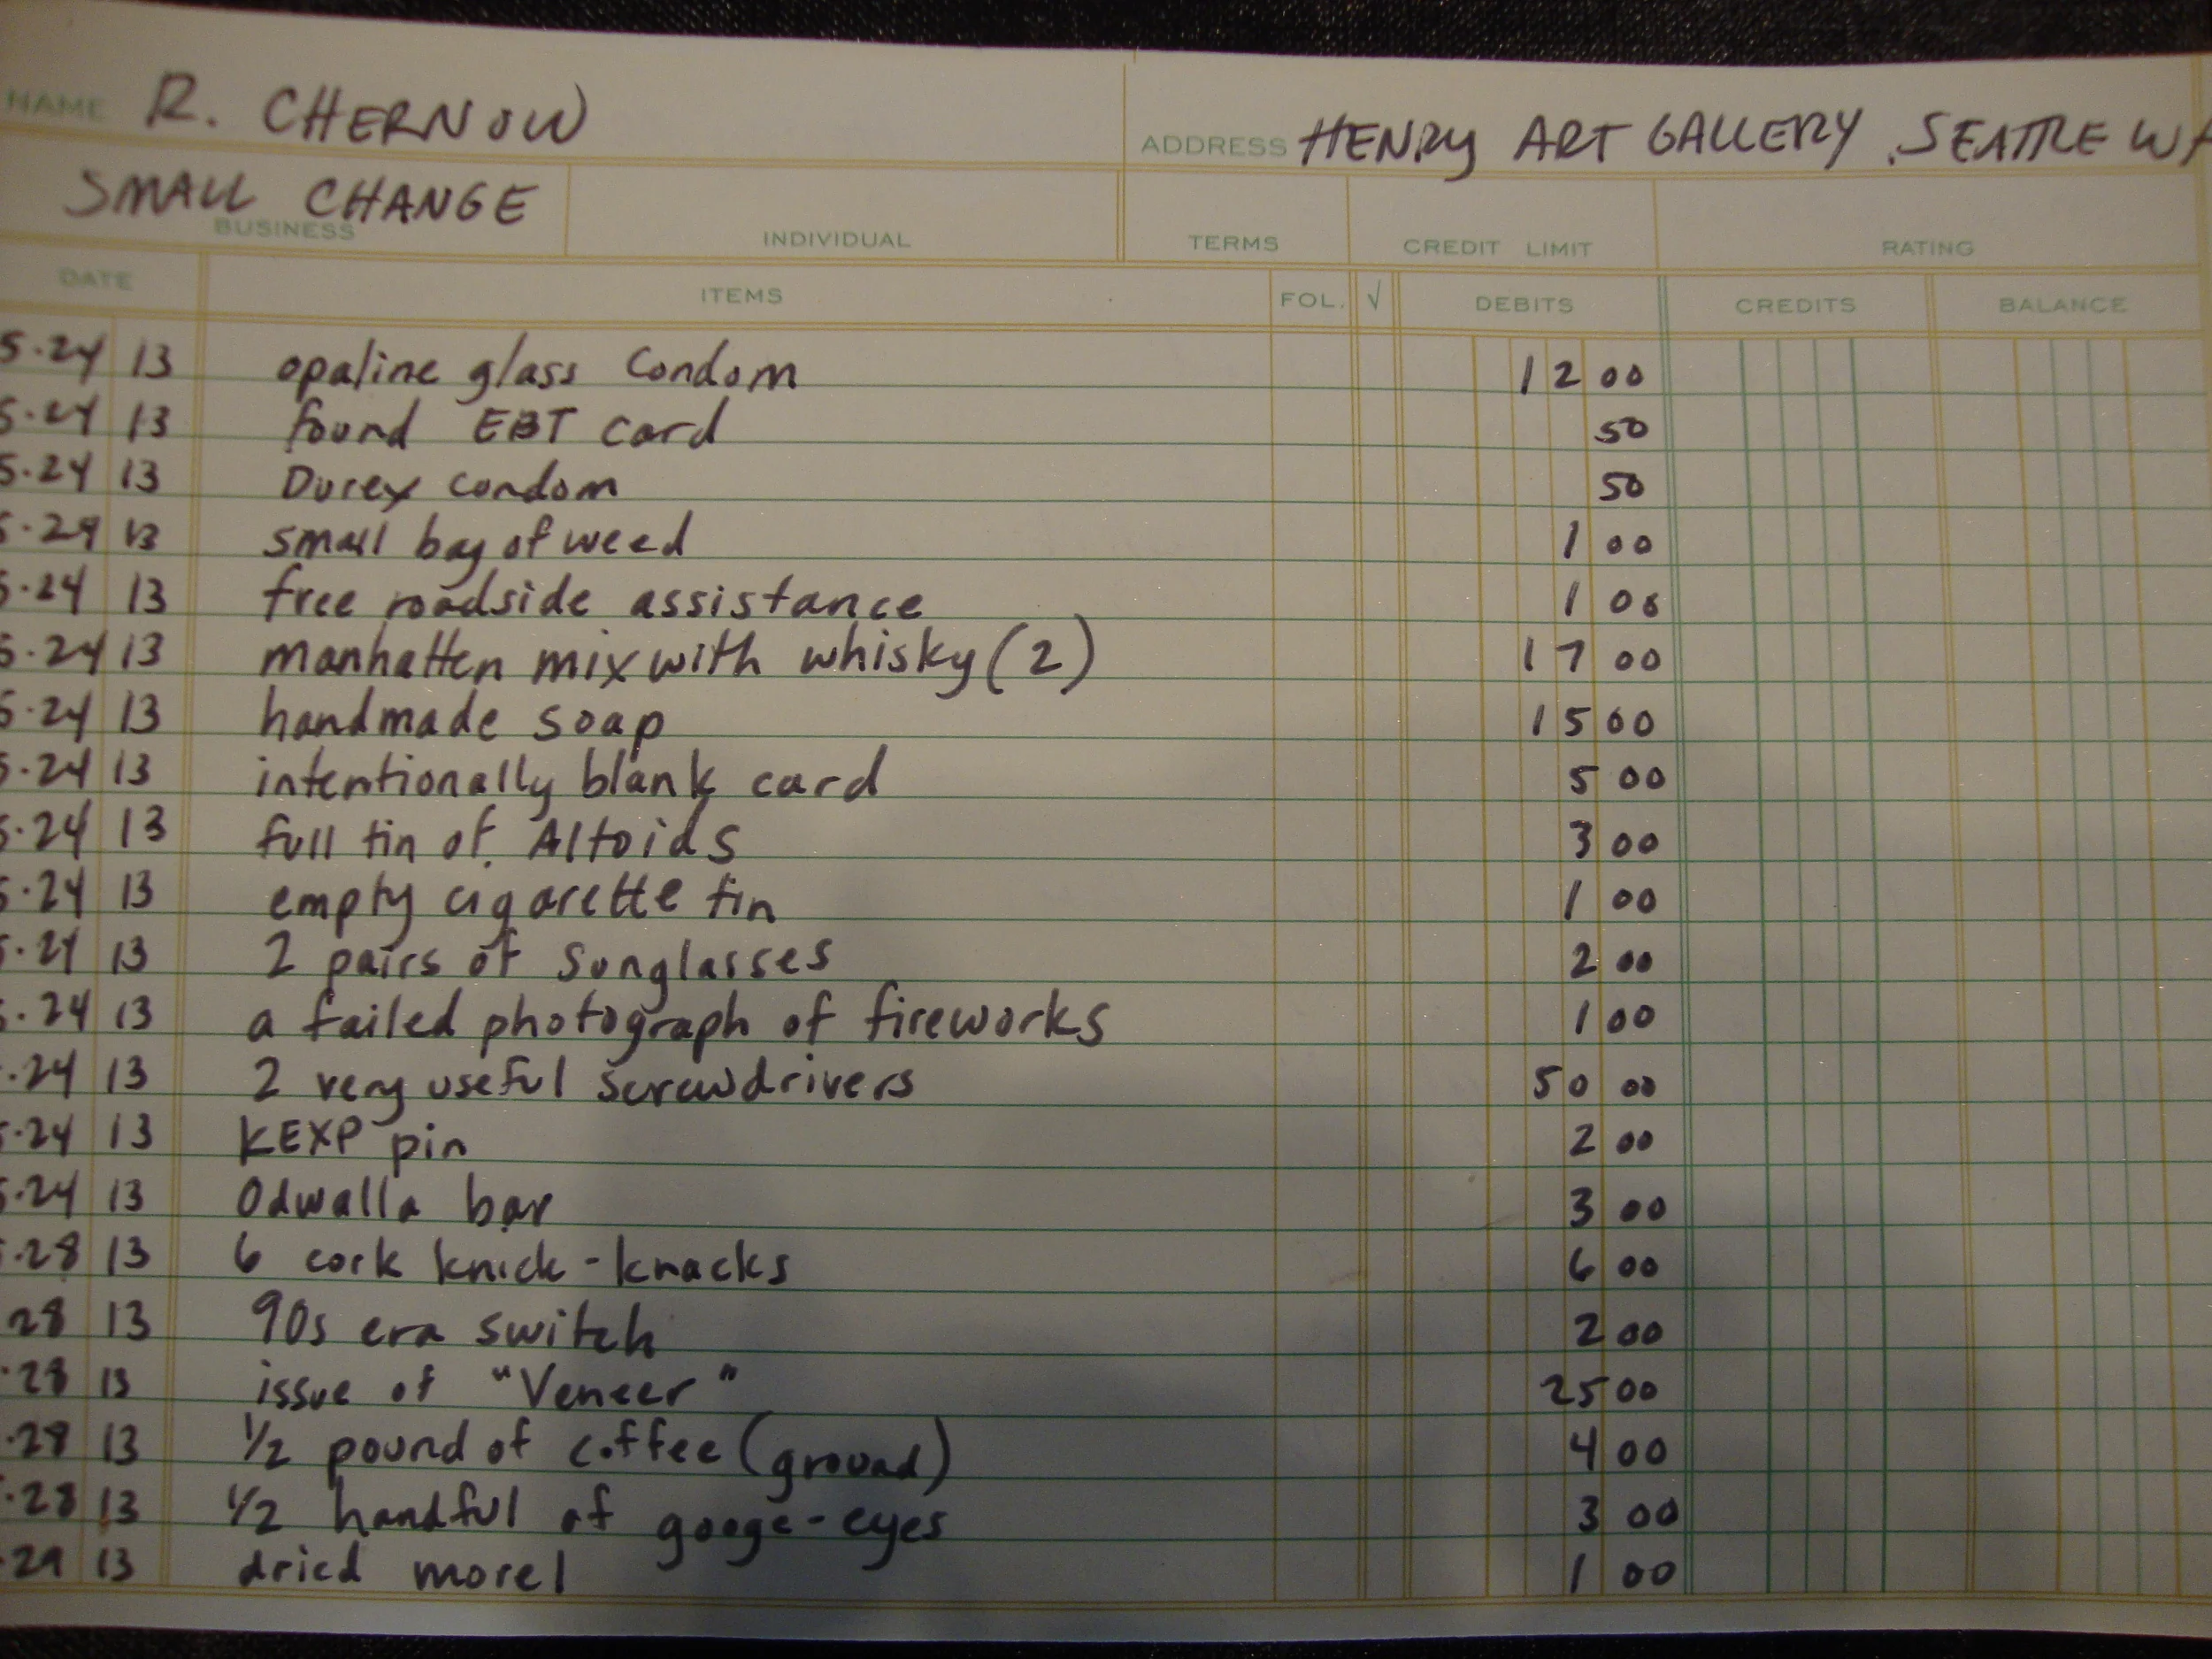 NAME R. CHERNOW ADDRESS HENRY ART GALLERY SEATTLE WA
SMALL CHANGE
BUSINESS INDIVIDUAL TERMS CREDIT LIMIT RATING
DATE ITEMS FOL. √ DEBITS CREDITS BALANCE
5.24 13 opaline glass condom 12 00
5.24 13 found EBT card 50
5.24 13 Durex condom 50
5.24 13 small bag of weed 1 00
5.24 13 free roadside assistance 1 00
5.24 13 manhatten mix with whisky (2) 17 00
5.24 13 handmade soap 15 00
5.24 13 intentionally blank card 5 00
5.24 13 full tin of Altoids 3 00
5.24 13 empty cigarette tin 1 00
5.24 13 2 pairs of sunglasses 2 00
5.24 13 a failed photograph of fireworks 1 00
.24 13 2 very useful screwdrivers 50 00
5.24 13 KEXP pin 2 00
5.24 13 Odwalla bar 3 00
.28 13 6 cork knick-knacks 6 00
28 13 90s era switch 2 00
.28 13 issue of "Veneer" 25 00
.28 13 1/2 pound of coffee (ground) 4 00
.28 13 1/2 handful of googe-eyes 3 00
.29 13 dried morel 1 00